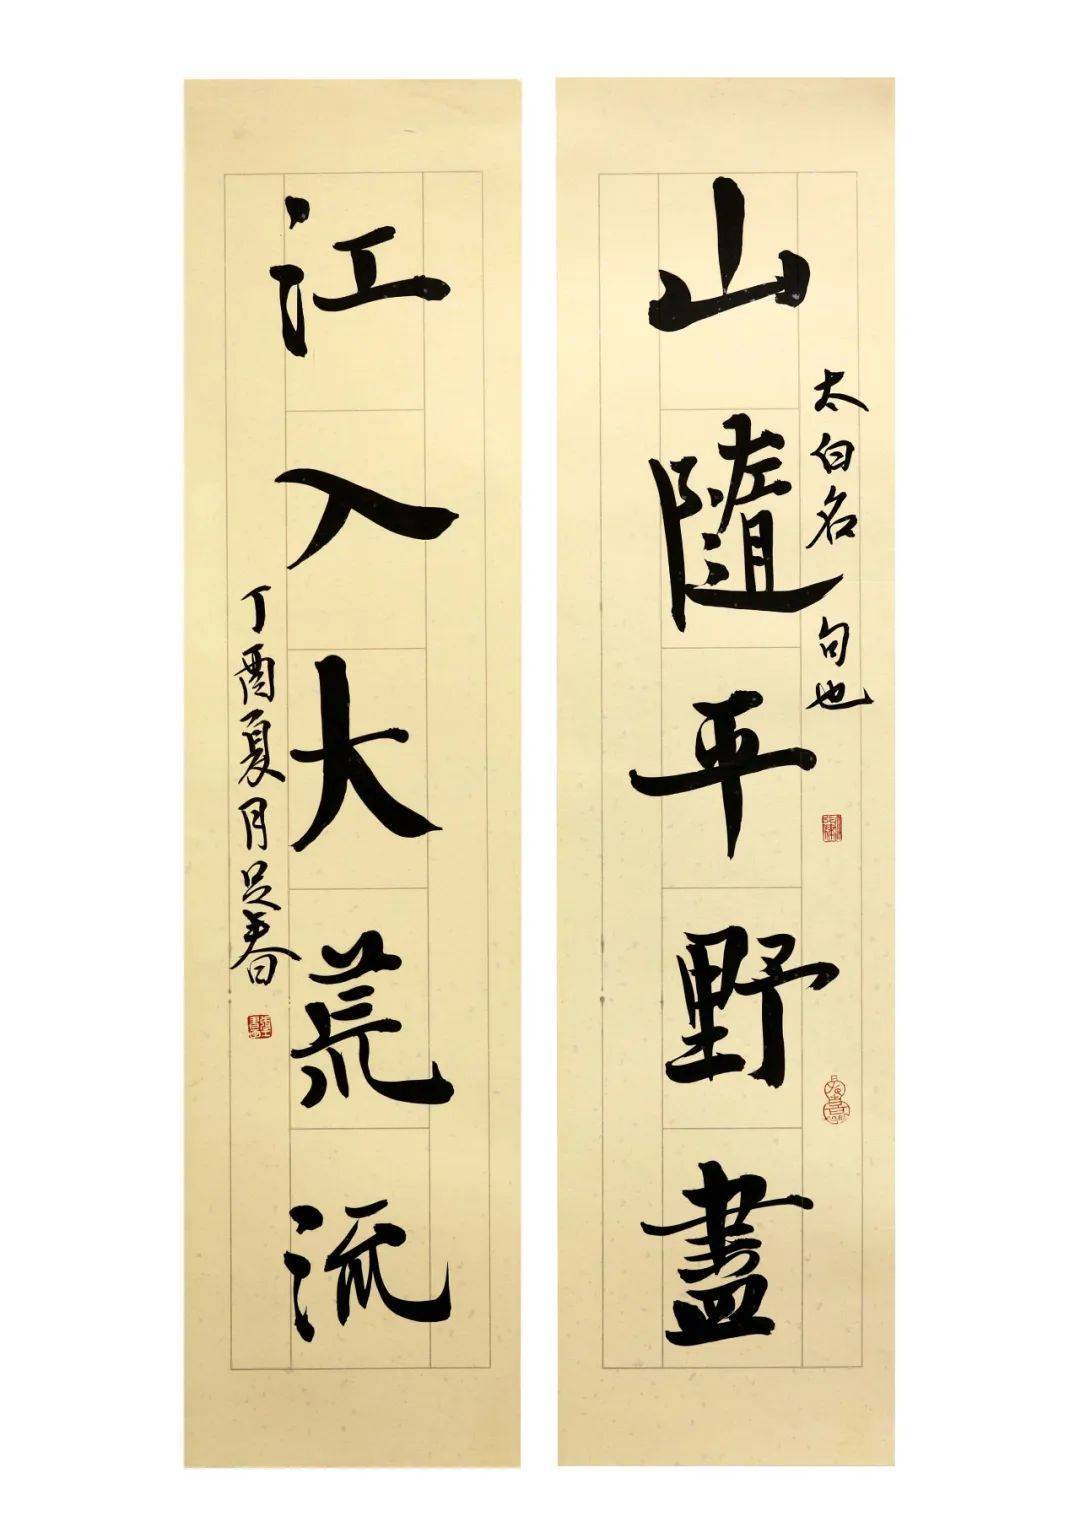 太白名句也
山隨平野盡
江入大荒流
丁酉夏月春